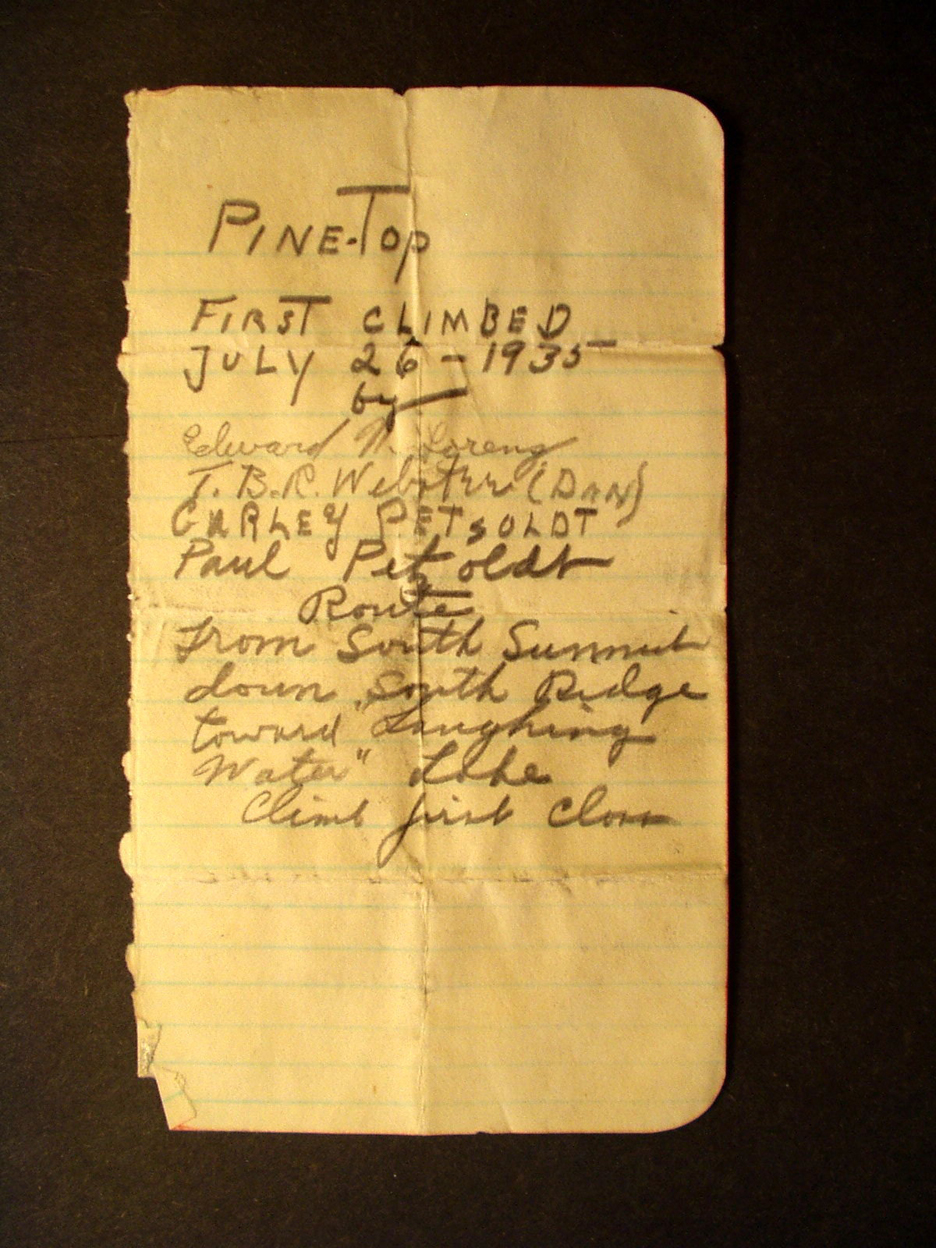 PINE-TOP
FIRST CLIMBED
JULY 26 - 1935
by
Edward N. Lorenz
T. B. R. Webster (DAN)
CURLEY PETSOLDT
Paul Petzoldt
Route
From South Summit
down South Ridge
toward "Laughing
Water" Lake
Climb first class